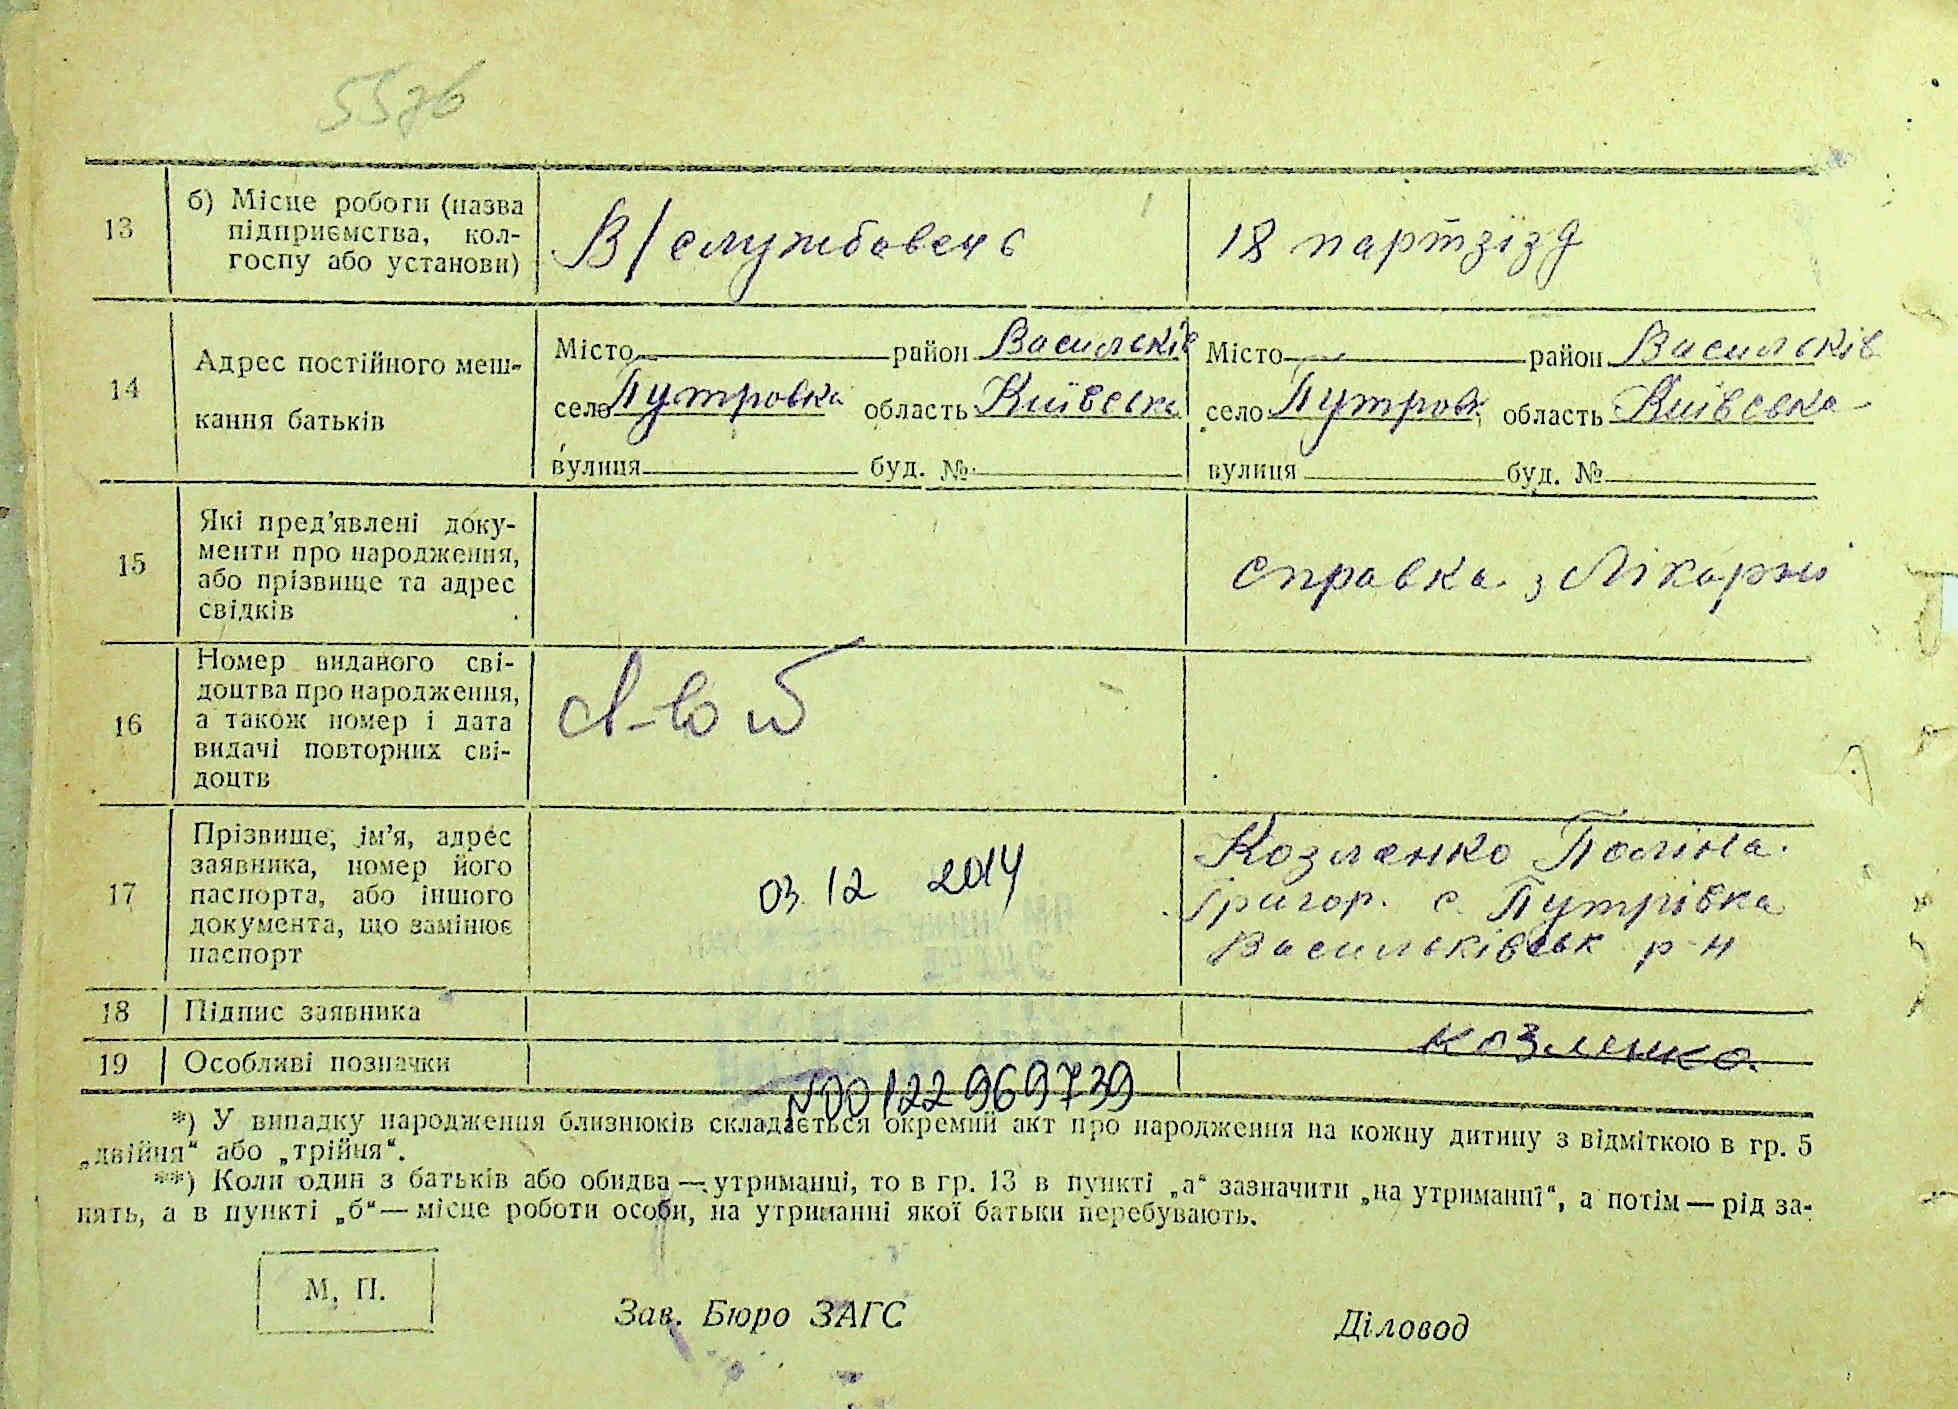 13 б) Місце роботи (назва підприємства, колгоспу або установи) В/службовець 18 партзїзд
14 Адрес постійного мешкання батьків
Місто район Васильків Місто район Васильків
село Путровка область Київська село Путровк область Київська
вулиця буд. № вулиця буд. №
15 Які пред'явлені документи про народження, або прізвище та адрес свідків справка з Лікарні
16 Номер виданого свідоцтва про народження, а також номер і дата видачі повторних свідоцтв
17 Прізвище, ім'я, адрес заявника, номер його паспорта, або іншого документа, що замінює паспорт 03 12 2014
Козленко Поліна
Григор. с. Путрівка
Васильківськ р-н
18 Підпис заявника Козленко.
19 Особливі позначки
N00122969739
*) У випадку народження близнюків складається окремий акт про народження на кожну дитину з відміткою в гр. 5
„двійня“ або „трійня“.
**) Коли один з батьків або обидва — утриманці, то в гр. 13 в пункті „а“ зазначити „на утриманні“, а потім — рід за-
нять, а в пункті „б“ — місце роботи особи, на утриманні якої батьки перебувають.
М. П.
Зав. Бюро ЗАГС Діловод